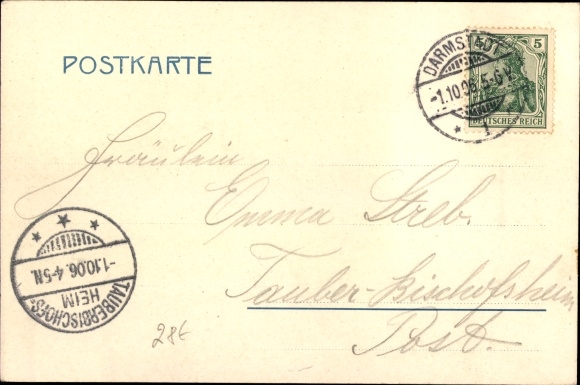 POSTKARTE
DARMSTADT
-1.10.06. 5-6 V.
* 1
5
DEUTSCHES REICH
Fräulein
Emma Streb.
Tauber-Bischofsheim
Post.
TAUBERBISCHOFS-
HEIM
-1.10.06. 4-5N.
28€